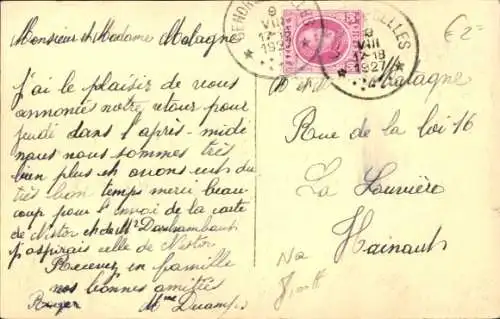 Monsieur et Madame Malagne
J'ai le plaisir de vous
annoncés notre retour pour
jeudi dans l'après-midi
nous nous sommes très
bien plus et avons eut du
très bon temps merci beau-
coup pour l'envoi de la carte
de Nestor et de Mr
j'aspirais celle de Nestor
Recevez en famille
nos bonnes amitiés
Roger Mme Decamps
VIII
17-18
1927
ELLES
VIII
17-18
1927
M et Mme Malagne
Rue de la loi 16
La Louvière
Hainaut
€2=
Na